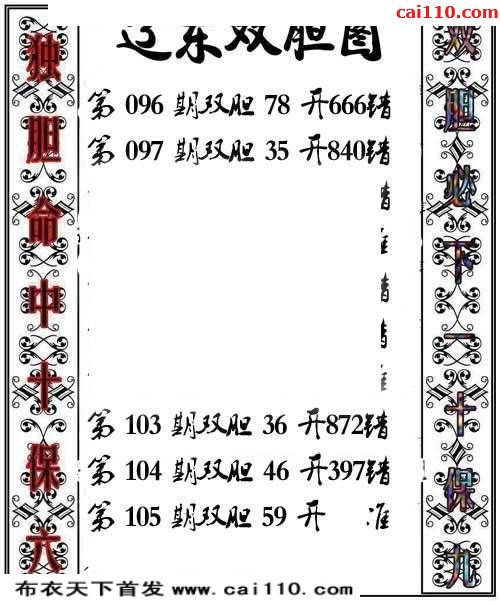 cai110.com
辽东双胆图
独胆命中十保六
第 096 期双胆 78 开666错
第 097 期双胆 35 开840错
错
准
错
错
准
第 103 期双胆 36 开872错
第 104 期双胆 46 开397错
第 105 期双胆 59 开 准
双胆必下一十保九
布衣天下首发 www.cai110.com